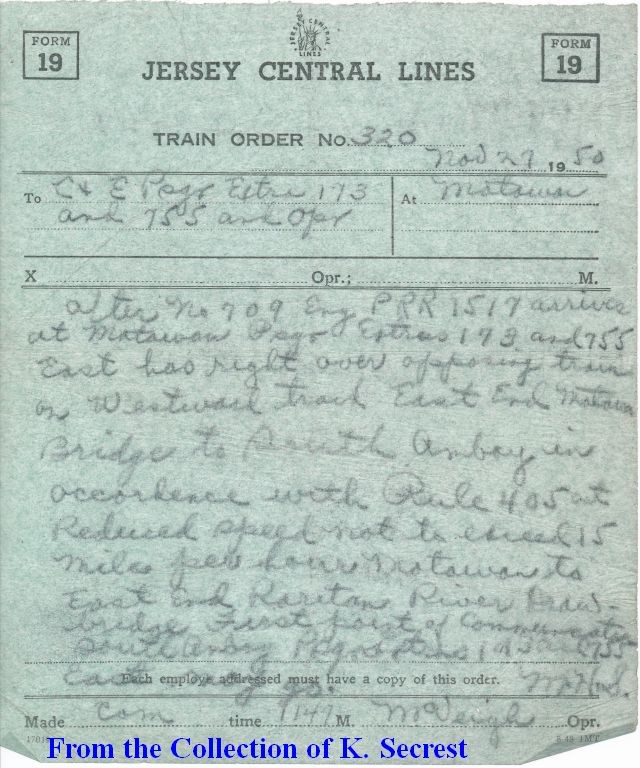 FORM 19
JERSEY CENTRAL LINES
FORM 19
JERSEY CENTRAL LINES
TRAIN ORDER No. 320
Nov 29 1950
To C & E Psgr Extra 173 and 755 and Opr
At Matawan
X Opr.; M.
after No 709 Eng PRR 1517 arrives
at Matawan Psgr Extras 173 and 755
East has right over opposing train
on Westward track East End Matawan
Bridge to South Amboy in
accordence with Rule 405 at
Reduced speed not to exceed 15
miles per hour Matawan to
East End Raritan River Draw-
bridge First point of Communication
South Amboy Psgr Extras 173 and 755
East
Each employe addressed must have a copy of this order.
Made Com time 1147 M. McVeigh Opr.
From the Collection of K. Secrest